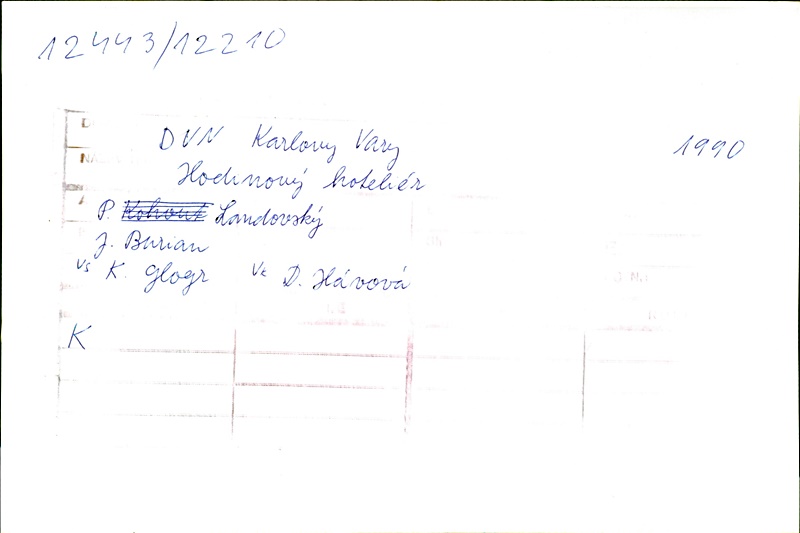 12443/12210
DVN Karlovy Vary 1990
Hodinový hoteliér
P. Kohout Landovský
J. Burian
Vs K. Glogr Vk D. Hávová
K